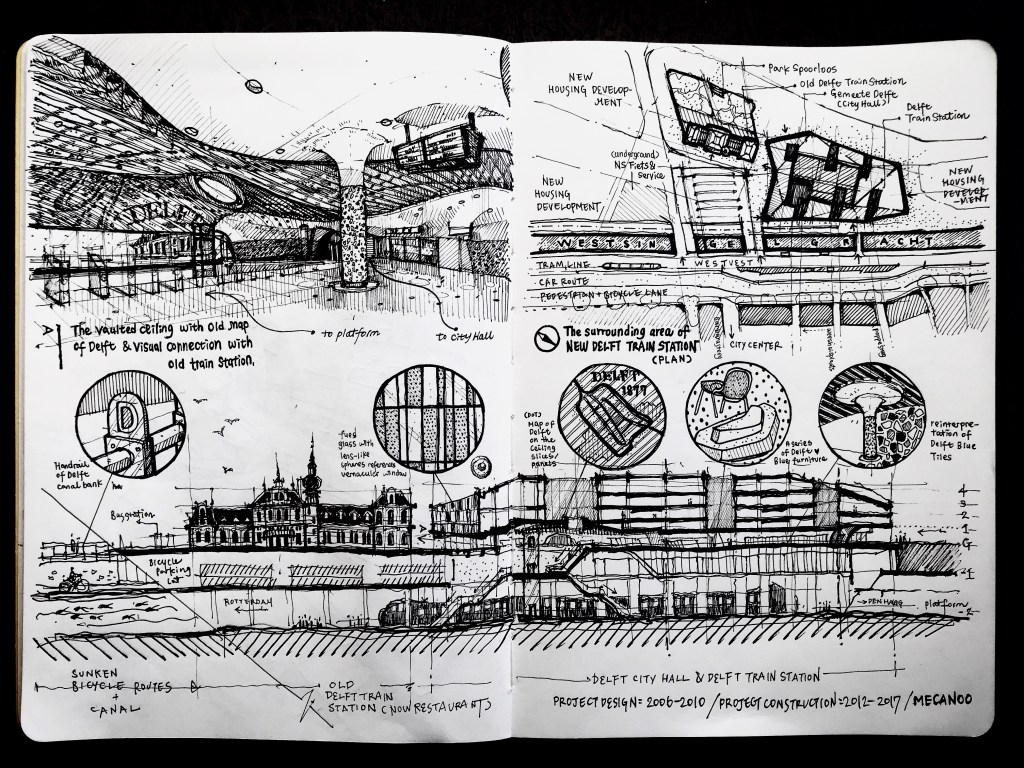 DELFT
to platform
to City Hall
A
The vaulted ceiling with old map
of Delft & Visual connection with
old train Station.
NEW
HOUSING DEVELOP-
MENT
Park Spoorloos
Old Delft Train Station
Gemeete Delft
(City Hall)
Delft
Train Station
(underground)
NS Fiets &
service
NEW
HOUSING
DEVELOPMENT
NEW
HOUSING
DEVELOP
-MENT
WESTSINGELGRACHT
WESTVEST
TRAM LINE
CAR ROUTE
PEDESTRIAN + BICYCLE LANE
CITY CENTER
The surrounding area of
NEW DELFT TRAIN STATION
(PLAN)
D
Handrail
of Delft
canal bank
fused
glass with
lens-like
spheres references
vernacular window
DELFT
1877
(DOT)
Map of
Delft
on the
Ceiling
panels
A series
of Delft
Blue furniture
reinterpre-
tation of
Delft Blue
Tiles
Bus station
Bicycle
Parking
Lot
ROTTERDAM
A
4
3
2
1
G
-1
DEN HAAG
platform
-2
SUNKEN
BICYCLE ROUTES
+
CANAL
OLD
DELFT TRAIN
STATION (NOW RESTAURANT)
DELFT CITY HALL & DELFT TRAIN STATION
PROJECT DESIGN = 2006-2010 / PROJECT CONSTRUCTION = 2012-2017 / MECANOO